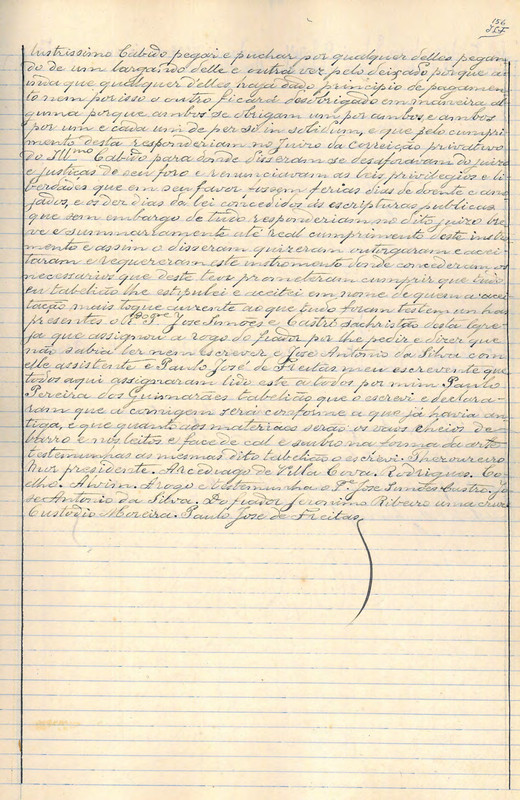 156
lustrissimo Cabido pegar e puchar por qualquer delles pegan
do de um largando delle e outra vez pelo deixado porque a
inda que qualquer d'elles haja dado principio de pagamen
to nem por isso o outro ficará desobrigado em maneira al
guma porque ambos se obrigam um por ambos e ambos
por um e cada um de per so in solidum, e que pelo cumpri
mento desta responderiam no juizo da correição privativo
do Ill.mo Cabido para donde disseram se desaforavam do juizo
e justiças de seu foro e renunciavam as leis privilegios e li
berdades que em seu favor fossem ferias dias de doente e ano
jados, e os dez dias da lei concedidos ás escripturas publicas
que sem embargo de tudo responderiam no dito juizo bre
ve e summariamente até real cumprimento deste instru
mento e assim o disseram quizeram outorgaram e acei
taram e requereram este instromento donde concederam os
necessarios que deste teor prometeram cumprir que tudo
eu tabelião lhe estipulei e aceitei em nome de quem a acei
tação mais toque ausente ao que tudo foram testemunhas
presentes o R.do P.e José Simões e Castro sachristão desta Igre
ja que assignou a rogo do fiador por lhe pedir e dizer que
não sabia ler nem escrever e José Antonio da Silva com
elle assistente e Paulo José de Freitas meu escrevente que
todos aqui assignaram lido este a todos por mim Paulo
Pereira dos Guimarães tabelião que o escrevi e declara
ram que a cornigem será conforme a que já havia an
tiga, e que quanto aos materiaes serão os vãos cheios de
barro e nos leitos e face de cal e saibro na forma da arte
testemunhas as mesmas dito tabelião o escrevi. Thezoureiro
Mór presidente. Arcediago de Villa Cova. Rodrigues. Co
elho. Alvim. A rogo e testemunha o P.e José Simões Castro. Jo
sé Antonio da Silva. Do fiador Jeronimo Ribeiro uma cruz
Custodio Moreira. Paulo José de Freitas